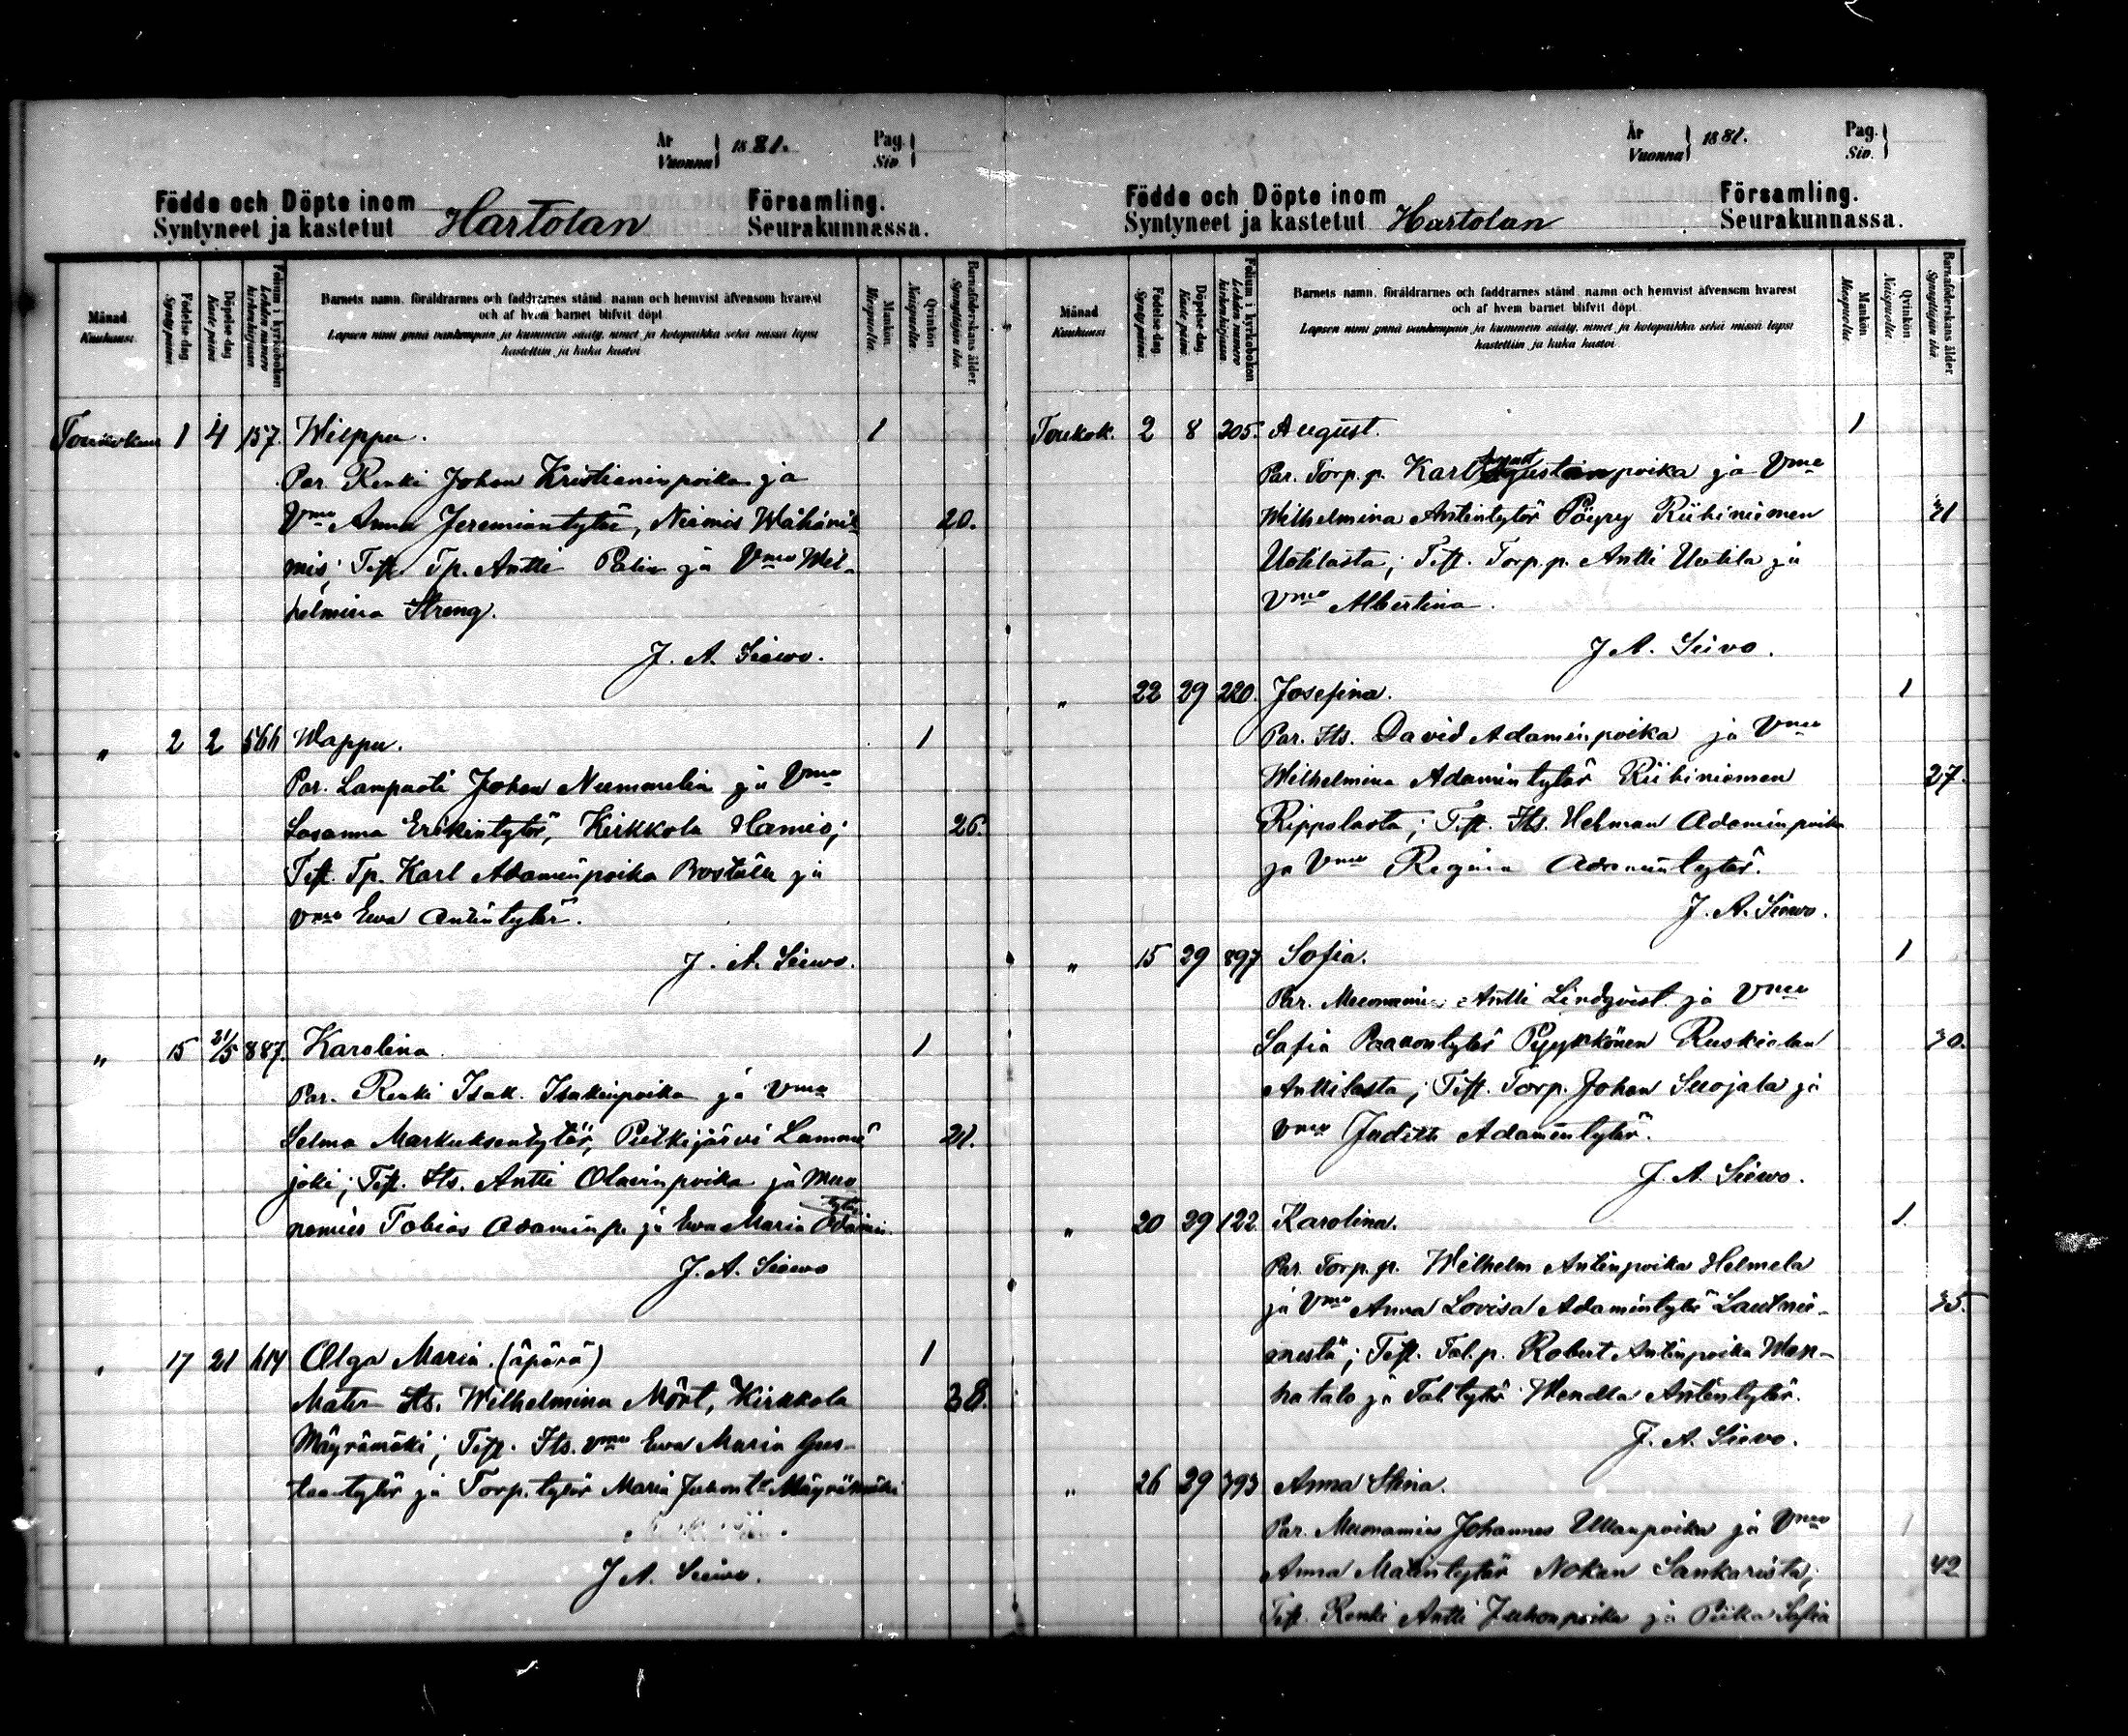 År
Vuonna } 1881.
Pag.
Siv. }
Födde och Döpte inom
Syntyneet ja kastetut Hartolan
Församling.
Seurakunnassa.
Månad
Kuukausi.
Födelse-dag.
Syntypäivä.
Döpelse-dag
Kaste päivä
Folium i kyrkoboken
Lehden numero
kirkonkirjassa.
Barnets namn, föräldrarnes och faddrarnes stånd, namn och hemvist äfvensom hvarest
och af hvem barnet blifvit döpt
Lapsen nimi ynnä vanhempain ja kummein sääty, nimet ja kotopaikka sekä missä lapsi
kastettiin ja kuka kastoi
Mankön.
Miespuolta.
Qvinkön.
Naispuolta.
Barnaföderskans ålder.
Synnyttäjän ikä.
Toukokuu 1 4 157. Wilppu. 1
Par. Renki Johan Kristianinpoika ja
Vmo Anna Jeremiantytär, Niemis 20.
mis; Test. Tp. Antti Palin ja Vmo Wil-
helmina Streng.
J. A. Siewo.
" 2 2 566 Wappu. 1
Par. Lampuoti Johan Nummelin ja Vmo
Susanna Erikintytär, Kirkkola Hamio; 26.
Test. Tp. Karl Adaminpoika ja
Vmo Ewa Antintytär.
J. A. Siewo.
" 15 21/5 887. Karolina 1
Par. Renki Isak Isakinpoika ja Vmo
Selma Markuksentytär, Putkijärvi Lammi- 21.
joki; Test. Its. Antti Olavinpoika ja Muo
tytär
namies Tobias Adaminp. ja Ewa Maria Adamin
J. A. Siewo
" 17 21 614 Olga Maria. (äpärä) 1
Mater Its. Wilhelmina Mört, Kirkkola 38.
Mäyrämäki; Test. Its. Vmo Ewa Maria Gus-
taantytär ja Torp. tytär Maria Juhont. Mäyrämäki
J. A. Siewo.
År
Vuonna } 1881.
Pag.
Siv. }
Födde och Döpte inom
Syntyneet ja kastetut Hartolan
Församling.
Seurakunnassa.
Månad
Kuukausi
Födelse-dag.
Syntypäivä.
Döpelse-dag.
Kaste päivä.
Folium i kyrkoboken
Lehden numero
kirkonkirjassa.
Barnets namn, föräldrarnes och faddrarnes stånd, namn och hemvist äfvensom hvarest
och af hvem barnet blifvit döpt.
Lapsen nimi ynnä vanhempain ja kummein sääty, nimet ja kotopaikka sekä missä lapsi
kastettiin ja kuka kastoi
Mankön
Miespuolta.
Qvinkön
Naispuolta
Barnaföderskans ålder
Synnyttäjän ikä.
Toukok. 2 8 205. August. 1
August
Par. Torp. p. Karl poika ja Vmo
Wilhelmina Antintytär Pöyry Riihiniemen 31
Uotilasta; Test. Torp. p. Antti Uotila ja
Vmo Albertina.
J. A. Siivo.
" 22 29 220. Josefina. 1
Par. Its. David Adaminpoika ja Vmo
Wilhelmina Adamintytär Riihiniemen 27.
Rippolasta; Test. Its. Heman Adaminpoika
ja Vmo Regina Adamintytär.
J. A. Siewo.
" 15 29 897 Sofia. 1
Par. Muonamies Antti Lindqvist ja Vmo
Sofia Paavontytär Pyykkönen Ruskealan 30.
Anttilasta; Test. Torp. Johan Suojala ja
Vmo Judith Adamintytär.
J. A. Siewo.
" 20 29 122 Karolina. 1.
Par. Torp. p. Wilhelm Antinpoika Helmela
ja Vmo Anna Lovisa Adamintytär Lautnie- 35.
mestä; Test. Tal. p. Robert Antinpoika Wan-
ha talo ja Tal. tytär Wendla Antintytär.
J. A. Siewo.
" 26 29 393 Anna Stina. 1
Par. Muonamies Johannes Ullanpoika ja Vmo
Anna Matintytär Nokan Sankarista; 42
Test. Renki Antti Juhonpoika ja Piika Sofia